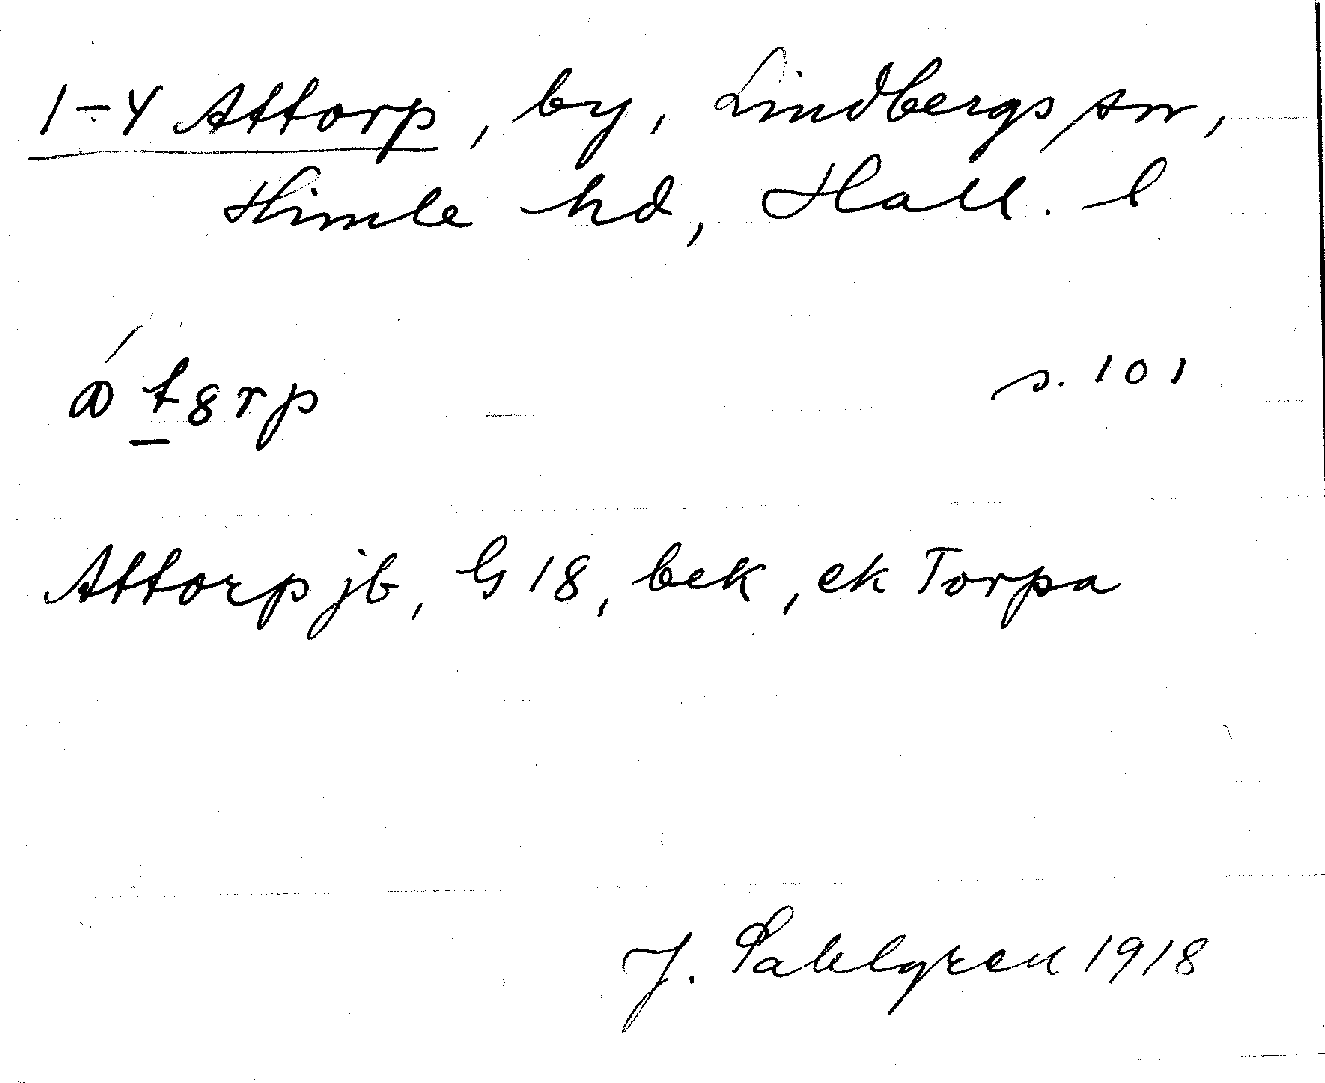 1-4 Attorp, by, Lindbergs sn,
Himle hd, Hall. l
s. 101
Attorp jb, G 18, bek, ek Torpa
J. Sahlgren 1918